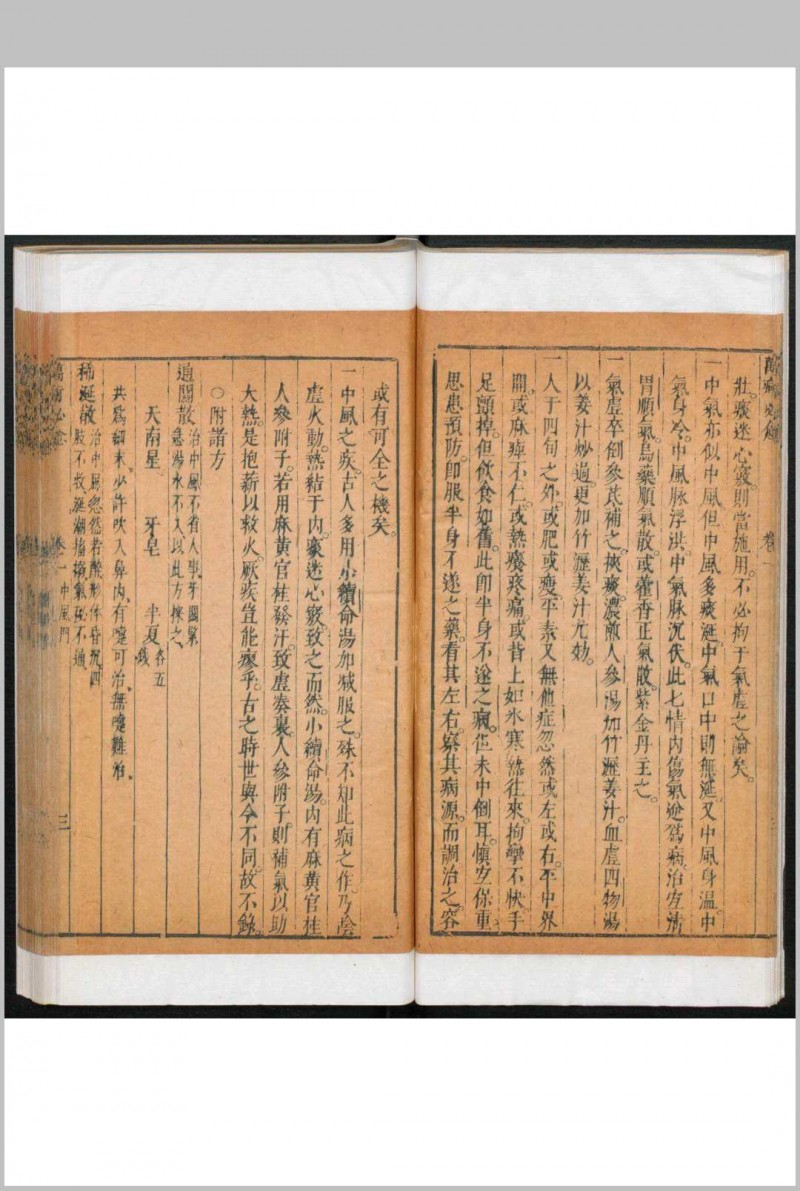 萬病必愈　卷一
壯。痰迷心竅。則當施用。不必拘于氣虛之論矣。
一中氣亦似中風。但中風多痰涎。中氣口中則無涎。又中風身溫。中
氣身冷。中風脉浮洪。中氣脉沉伏。此七情內傷氣逆爲病。治宜清
胃順氣。烏藥順氣散。或藿香正氣散。紫金丹主之。
一氣虛卒倒。參芪補之。挾痰。濃煎人參湯加竹瀝姜汁。血虛四物湯
以姜汁炒過。更加竹瀝姜汁尤効。
一人于四旬之外。或肥或瘦。平素又無他症。忽然或左或右。平中界
開。或麻痺不仁。或熱癢疼痛。或昔上如氷。寒熱往來。拘攣不快。手
足顫掉。但飲食如舊。此卽半身不遂之病。但未中倒耳。愼宜保重。
思患預防。卽服半身不遂之藥。看其左右。察其病源。而調治之。容
或有可全之機矣。
一中風之疾。古人多用小續命湯加減服之。殊不知此病之作。乃陰
虛火動。熱結于內。痰迷心竅。致之而然。小續命湯。內有麻黃官桂
人參附子。若用麻黃官桂發汗。致虛奏裏。人參附子則補氣以助
大熱。是抱薪以救火。厥疾豈能瘳乎。古之時世與今不同。故不錄。
○附諸方
通關散　治中風不省人事。牙關緊
急。湯水不入。以此方探之。
天南星　牙皂　半夏各五
錢
共爲細末。少許吹入鼻內。有嚏可治。無嚏難治。
稀涎散　治中風忽然若醉。形体昏沉。四
肢不收。涎潮搐搦。氣疏不通。
萬病必愈　卷一　中風門　三